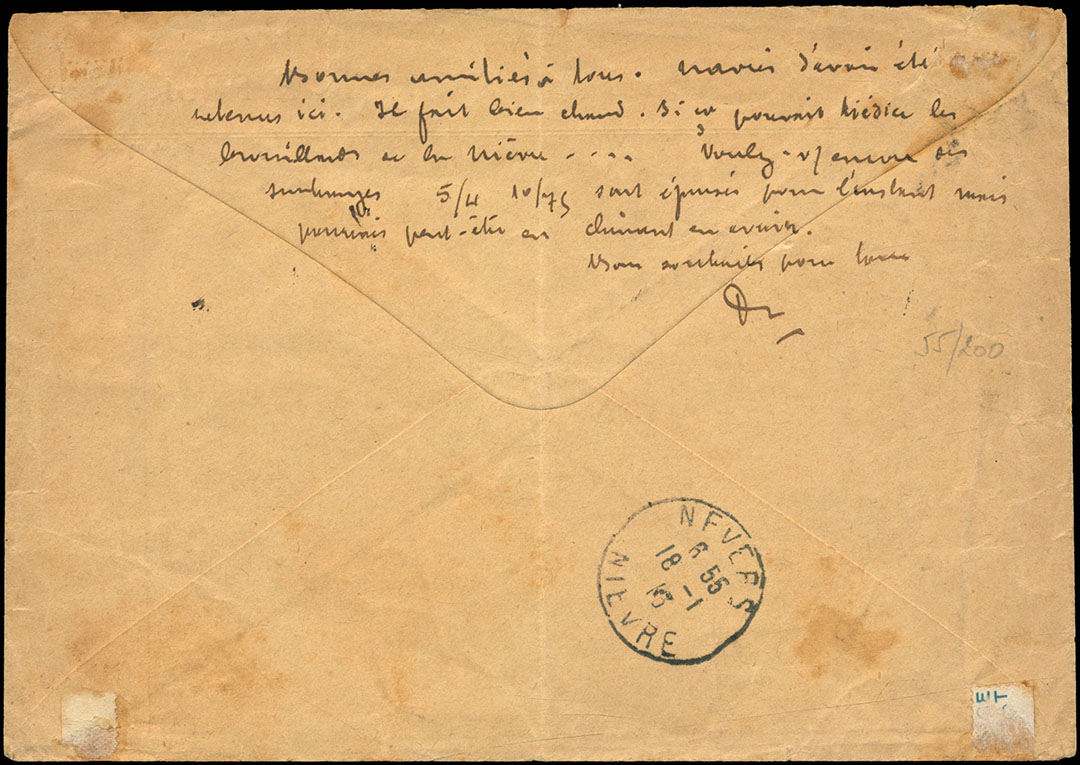 Bonnes amitiés à tous. navrés d'avoir été
retenus ici. Il fait bien chaud. Si ça pouvait tiédir les
brouillards de la Nièvre .... Voulez-v/ encore des
surcharges 5/4 10/75 sont épuisés pour l'instant mais
pourrais peut-être en en avoir.
Bons souhaits pour tous
55/200
NEVERS
6 55
18 -1
15
NIEVRE
E
T